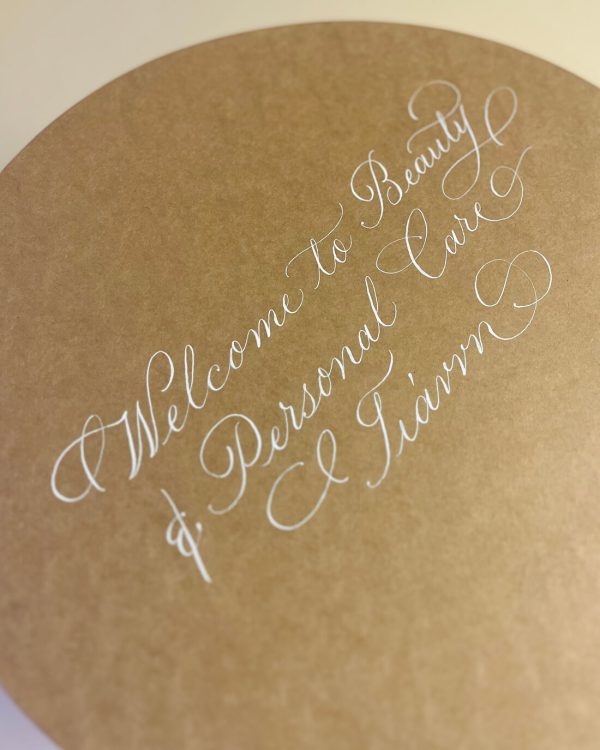 Welcome to Beauty
& Personal Care
Γιάννη